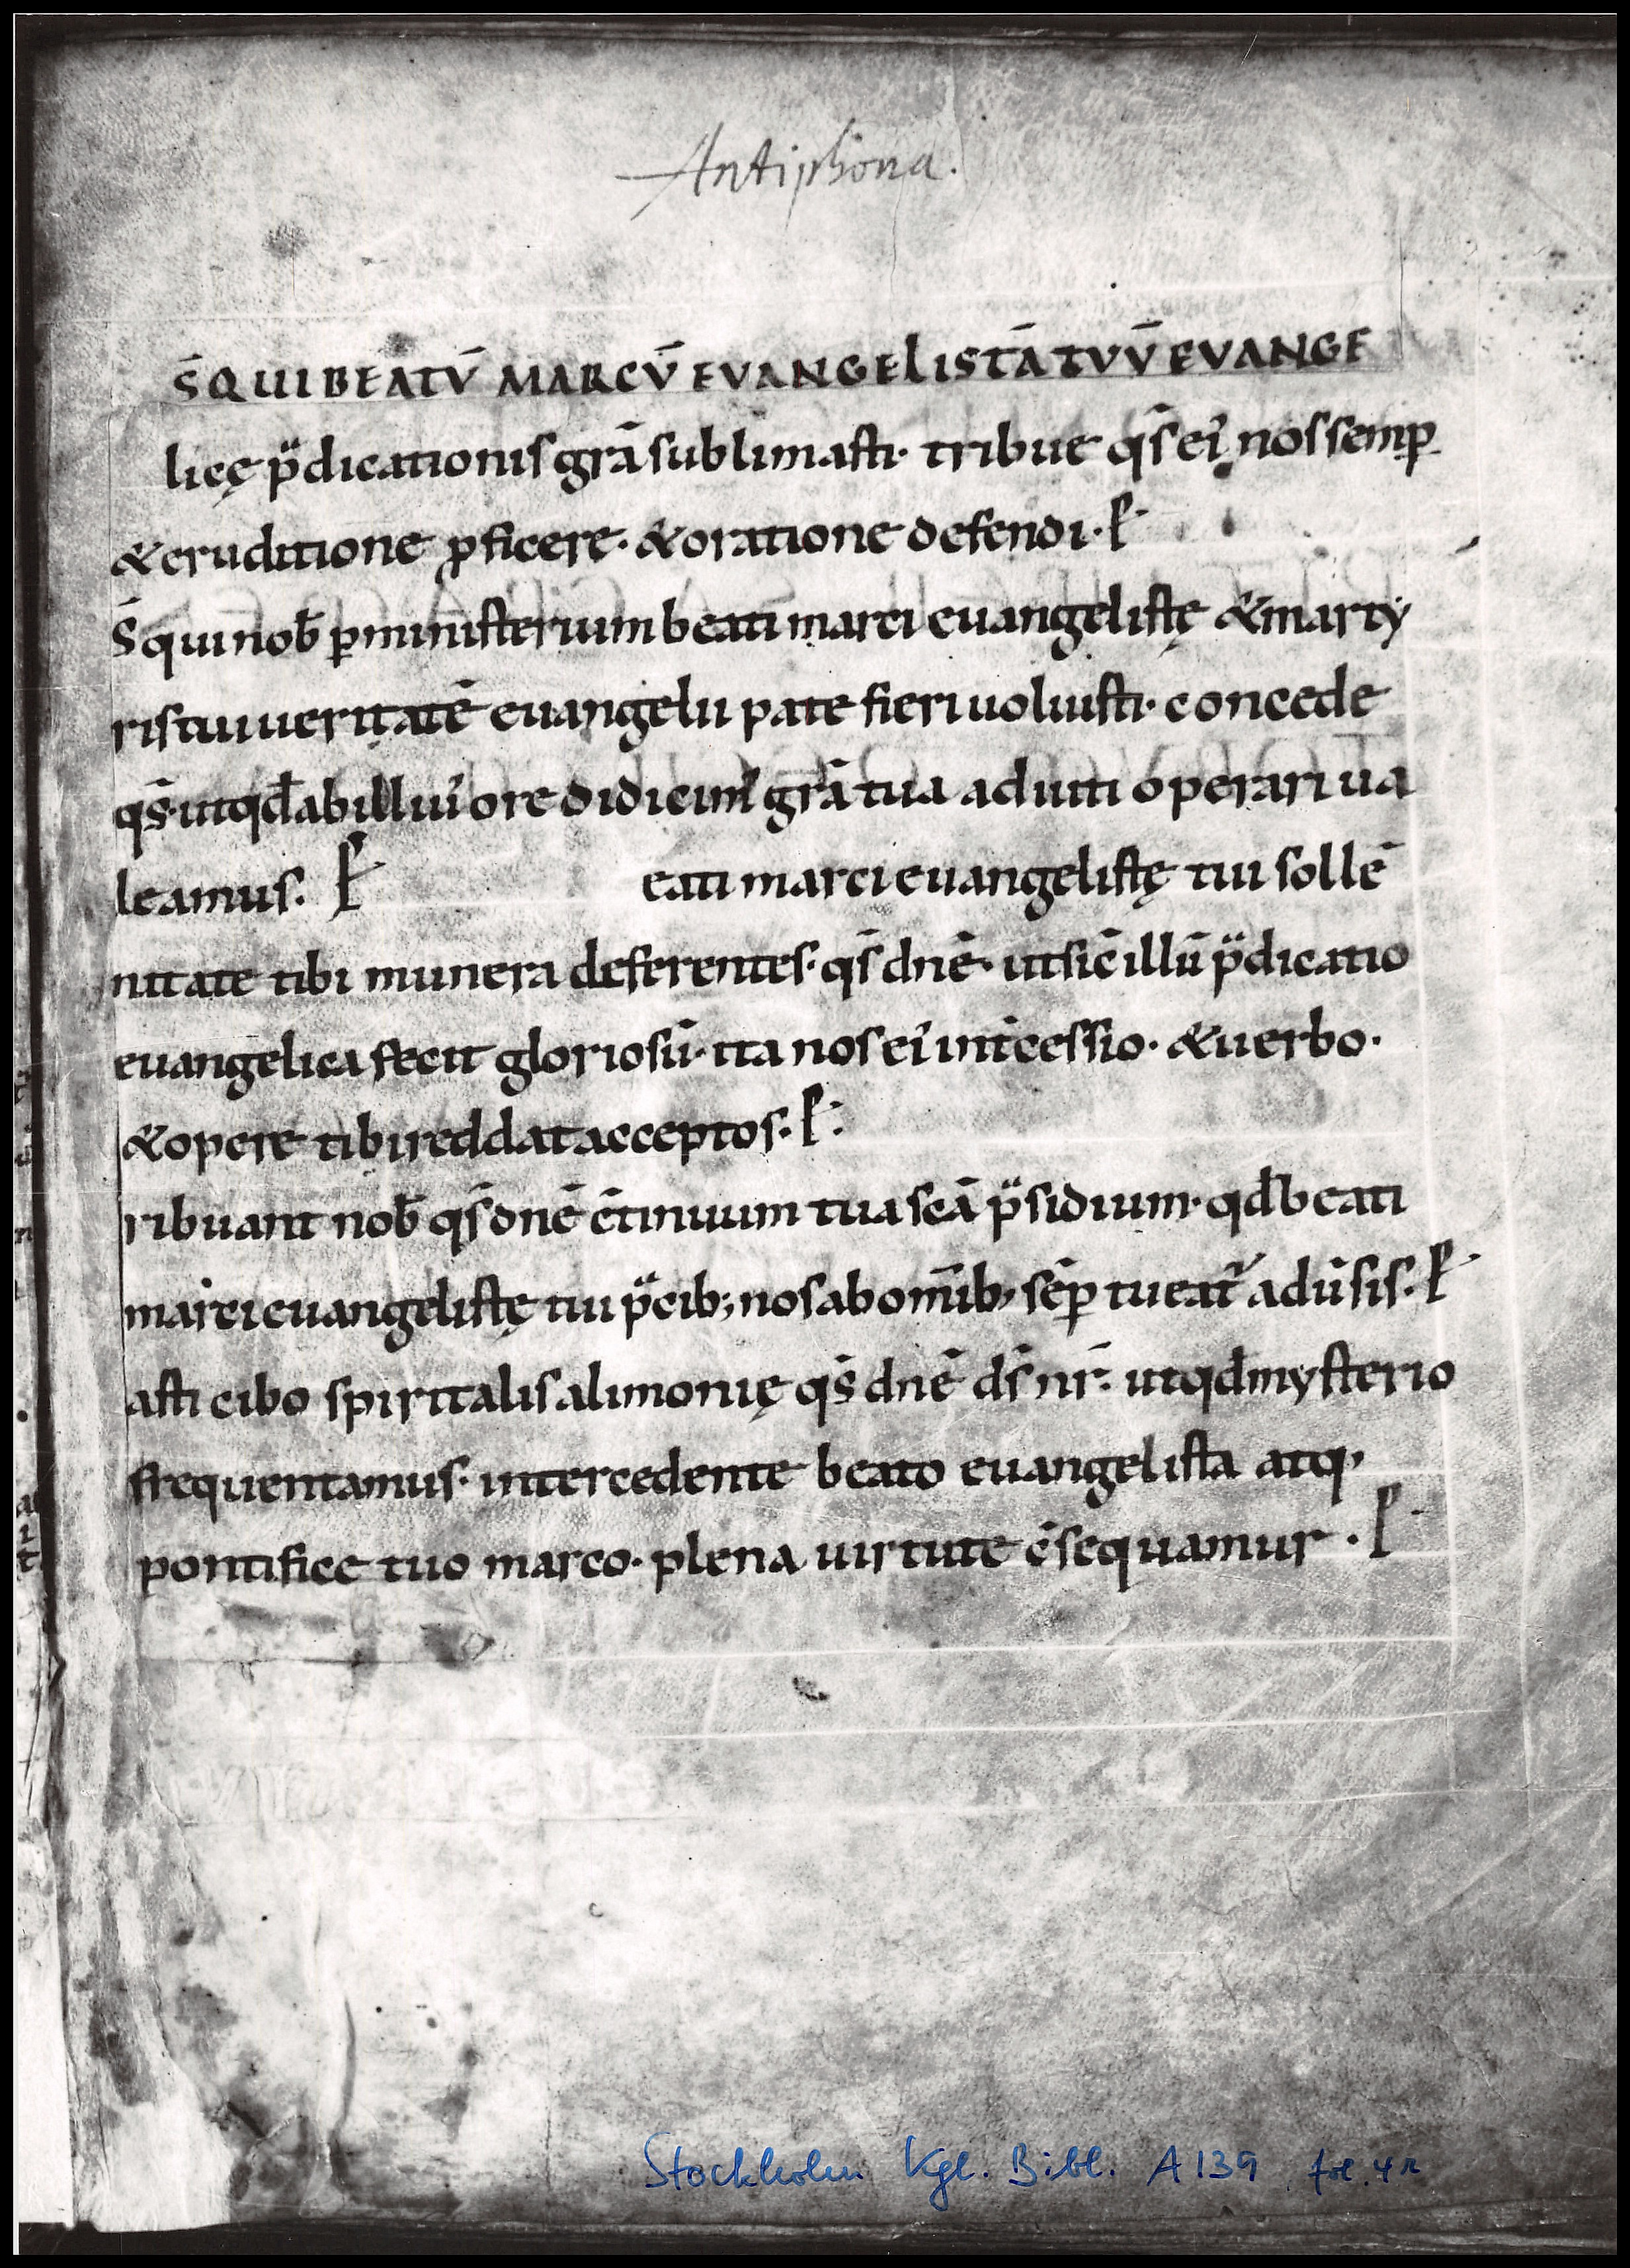 Antiphona.
S̄ QUI BEATŪ MARCŪ EVANGELISTĀ TVŪ EVANGE
licę p̈dicationis grā sublimasti· tribue qs̄ ei' nos semp̱
& eruditione ꝓficere· & oratione defendi· P
S̄ qui nob̄ ꝑ ministerium beati marci euangelistę & marty
ris tui ueritatē euangelii pate fieri uoluisti· concede
qs̄· ut qd̄ ab illiu' ore didicim' grā tua adiuti operari ua
leamus. P eati marci euangelistę tui sollē
nitate tibi munera deferentes· qs̄ dnē· ut sic̄ illū p̈dicatio
euangelica fecit gloriosū· ita nos ei' int̄cessio· & uerbo·
& opere tibi reddat acceptos· P:
ribuant nob̄ qs̄ dnē c̄tinuum tua scā p̈sidium· qd̄ beati
marci euangelistę tui p̈cib; nos ab om̄ib; sēp tueat' adūsis· P
asti cibo spiritalis alimonię qs̄ dnē ds̄ nr̄· ut qd̄ mysterio
frequentamus· intercedente beato euangelista atq;
pontifice tuo marco· plena uirtute c̄sequamur · P
Stockholm Kgl. Bibl. A 139, fol. 4r